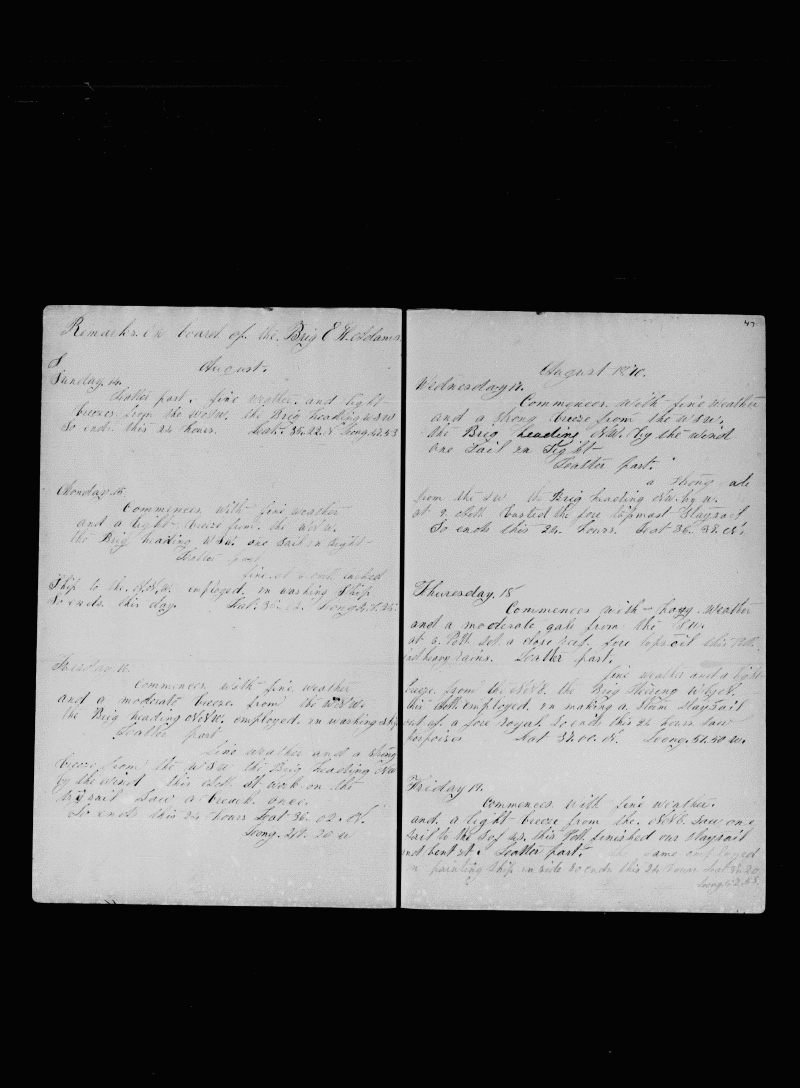 Remarks on board of the Brig E H. Adams
August.
Sunday 14.
Latter part. fine weather. and light
breezes from the W.S.W. the Brig heading
So ends this 24 hours. Lat. 35.22.N Long. 47.53
Monday 15
Commences with fine weather
and a light breeze from the W.S.W.
the Brig heading one sail in sight
Latter part
fine
Ship to the N.N.W. employed in washing Ship
So ends this day. Lat. Long.
Commences with fine weather
and a moderate breeze from the W.S.W.
the Brig heading N.N.W. employed in washing ship
Latter part
fine weather and a strong
breeze from the W S W the Brig heading NW
by the wind this A.M. at work on the
trysail Saw a breach once.
So ends this 24 hours Lat 36.02.N.
Long. 20 W
47
August 1870.
Wednesday 17.
Commences with fine weather
and a strong breeze from the W.S.W.
the Brig heading N.W. by the wind
one sail in sight
Latter part.
a strong gale
from the SW the Brig heading N.W. by W.
at 9. A.M. busted the fore topmost Staysail
So ends this 24. hours. Lat 36.38.N.
Thursday. 18
Commences with weather
and a moderate gale from the S.W.
at 5. P.M. set a close reef. fore topsail this P.M.
and heavy rains. Latter part.
fine weather and a light
breeze from the N.N.E. the Brig Stering W.by N.
this A.M. employed in making a Stay sail
out of a fore royal So ends this 24 hours saw
porpoises Lat 37.00.N. Long. 51.50 W.
Friday 19.
Commences with fine weather.
and. a light breeze from the. N.N.E. saw one
sail to the of us. this P.M. finished our Staysail
and bent it. Latter part. the same employed
in painting Ship in side So ends this 24 hours Lat
Long.